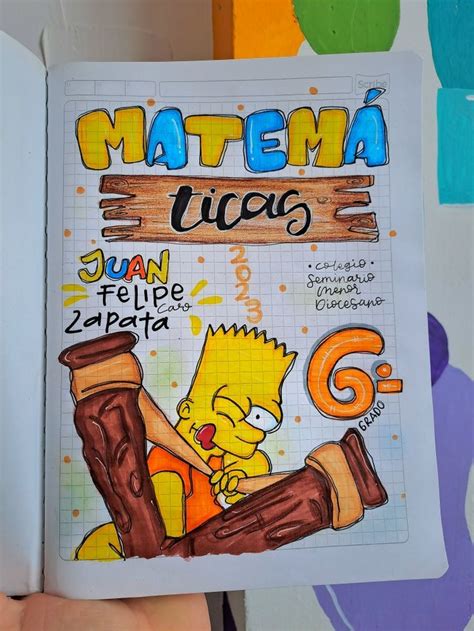 Scribe
MATEMÁ
ticas
JUAN
Felipe
Caro
Zapata
2023
• colegio •
Seminario
Menor
Diocesano
6º
GRADO